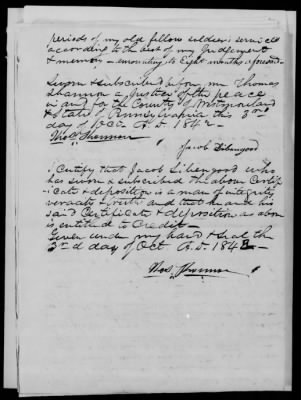 periods of my old fellow soldiers services
according to the best of my Judgement
& memory amounting to Eight months & second.
Sworn & subscribed before me Thomas
Shannon a Justice of the peace
in and for the County of Westmoreland
& State of Pennsylvania this 3rd
day of A.D. 1842
Thos Shannon
Jacob Dibengood
I Certify that Jacob Dibengood who
has sworn & subscribed the above Certif
icate & deposition is a man of integrity
veracity & truth and that he and his
said Certificate & deposition as above
is entitled to Credit
Given under my hand & seal the
3rd day of Oct A.D. 1842
Thos. Shannon